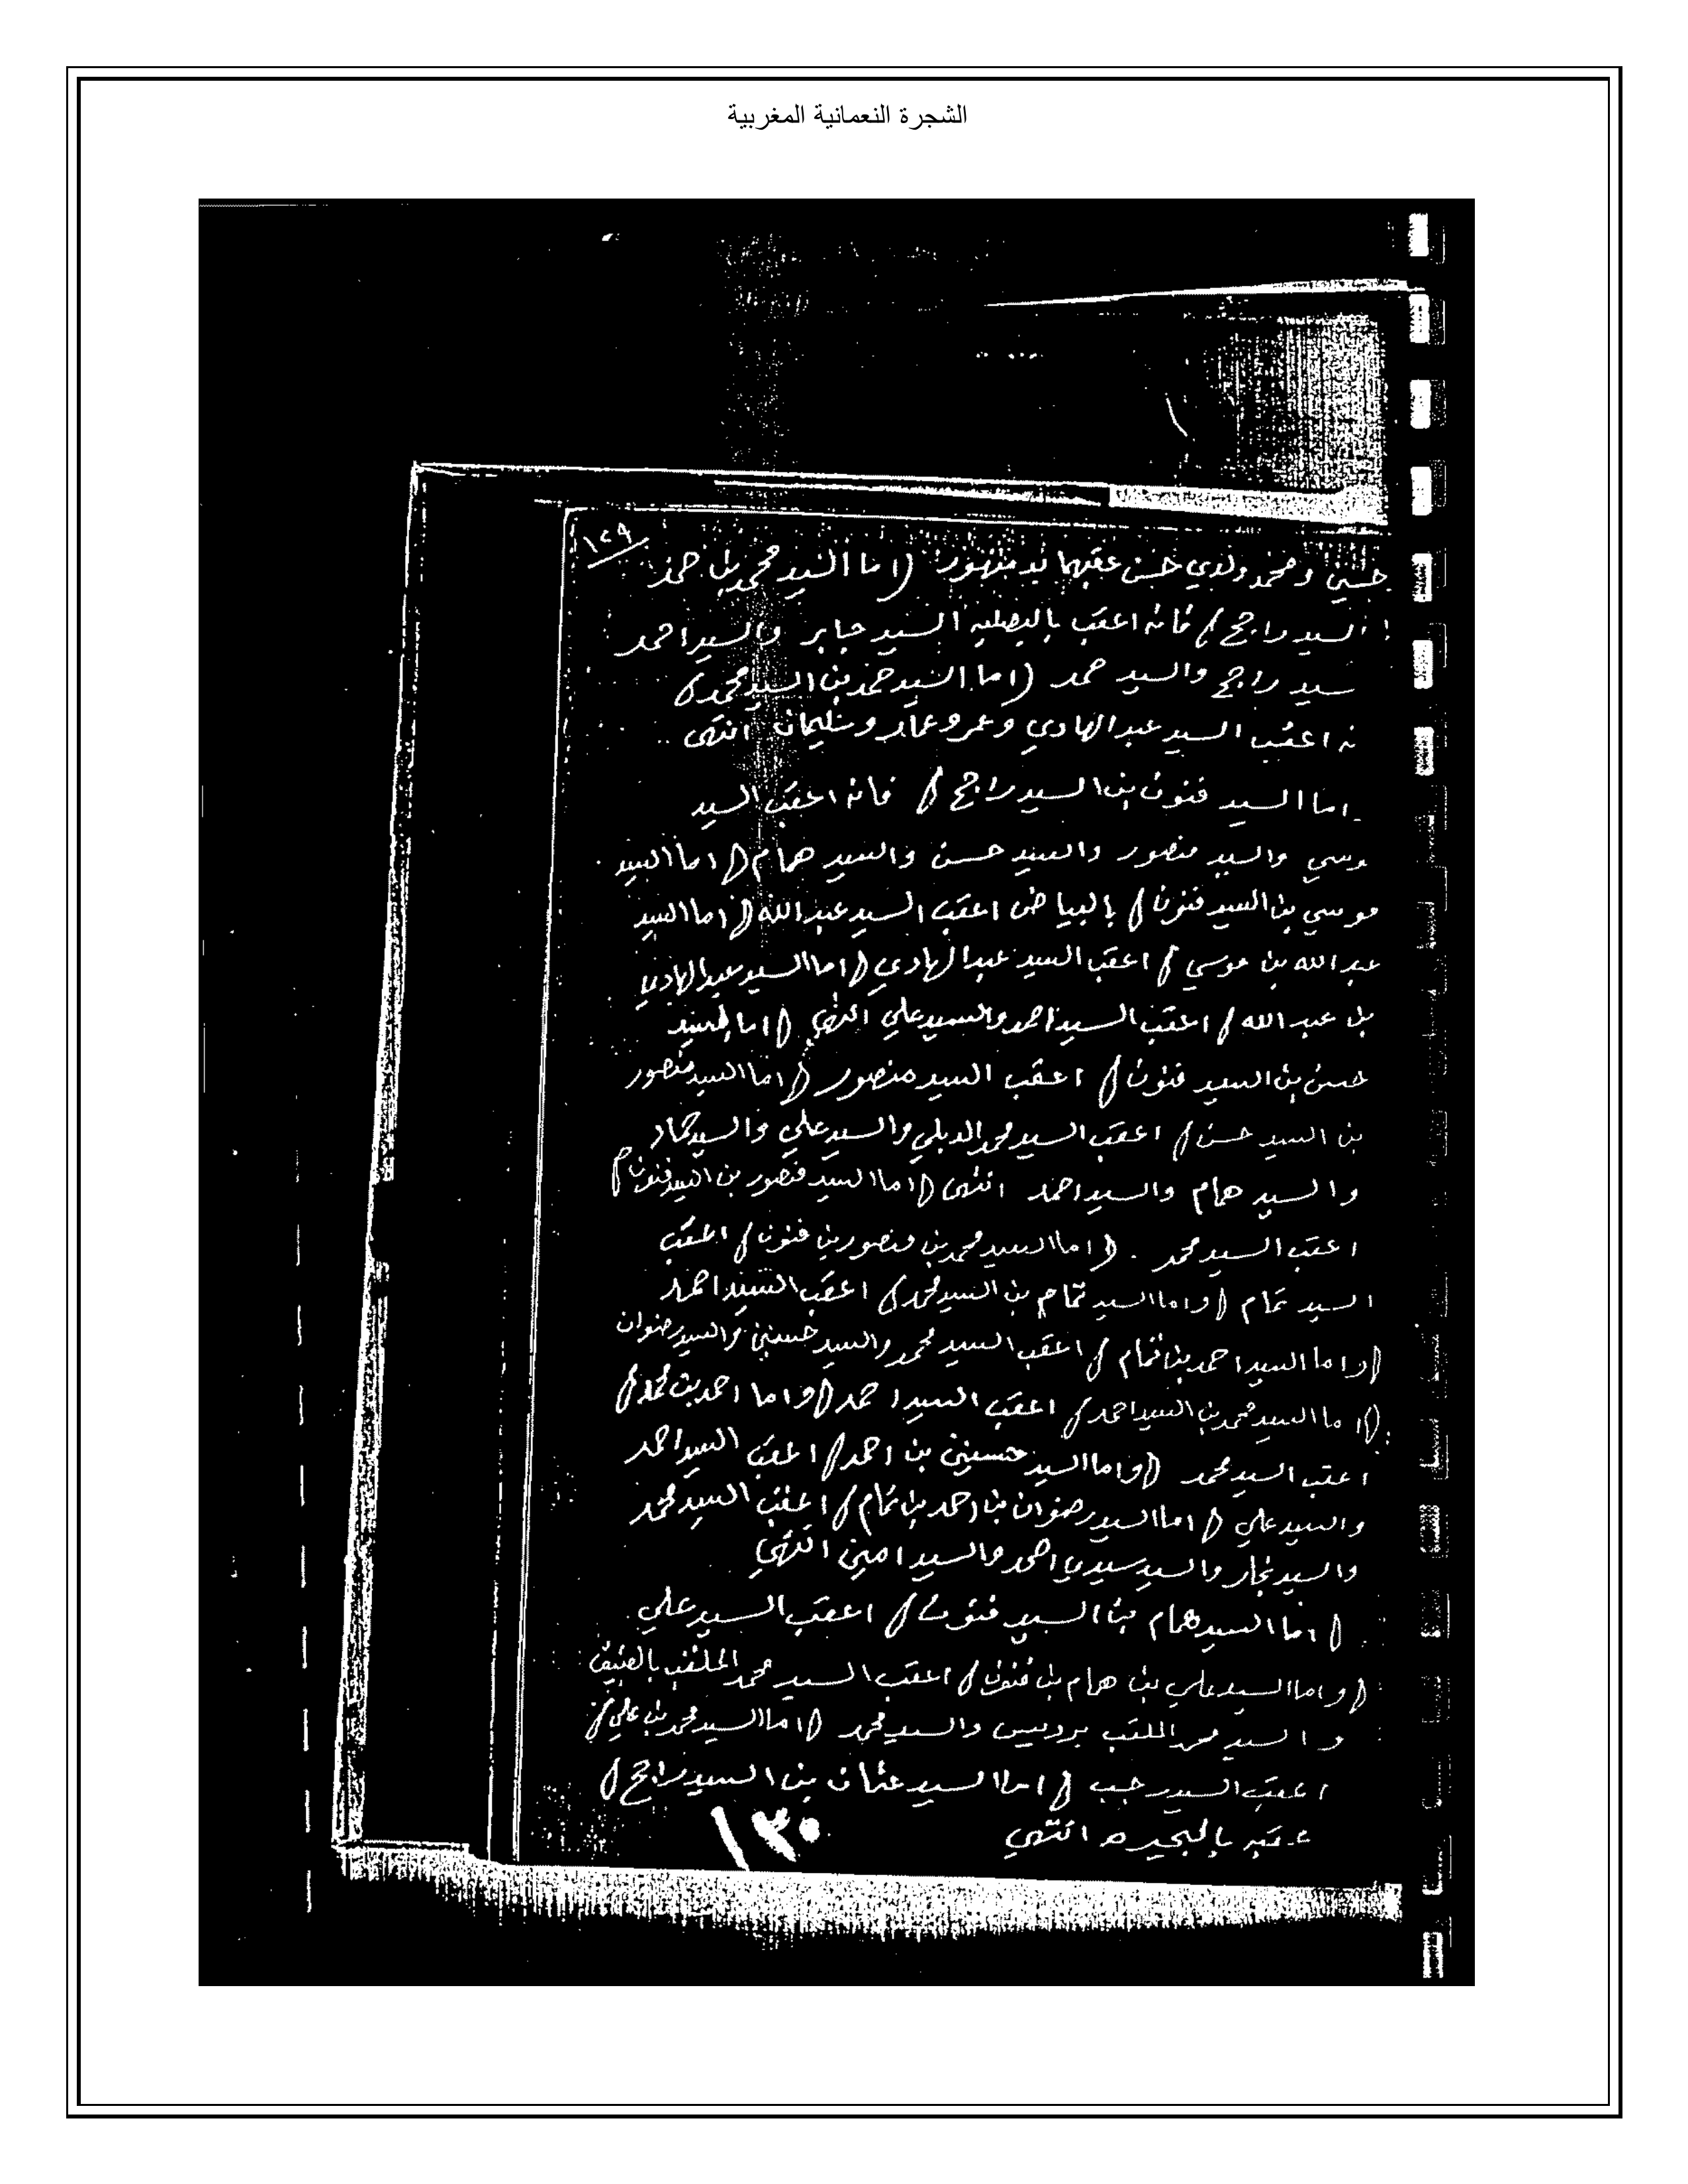 الشجرة النعمانية المغربية
١٢٩
حسني ومحمد ولدي حسن عقبهما بدمنهور (اما السيد محمد بن حمد
السيد راجح) فانه اعقب بالبصليه السيد جابر والسيد احمد
سيد راجح والسيد حمد (اما السيد حمد بن السيد محمد)
نه اعقب السيد عبد الهادي وعمر وعمار وسليمان انتهى
اما السيد فنون بن السيد راجح) فانه اعقب السيد
موسي والسيد منصور والسيد حسن والسيد همام (اما السيد
موسي بن السيد فنون) بالبياض اعقب السيد عبد الله (اما السيد
عبد الله بن موسي) اعقب السيد عبد الهادي (اما السيد عبد الهادي
بن عبد الله) اعقب السيد احمد والسيد علي انتهي (اما السيد
حسن بن السيد فنون) اعقب السيد منصور (اما السيد منصور
بن السيد حسن) اعقب السيد محمد الدبلي والسيد علي والسيد حماد
والسيد همام والسيد احمد انتهى (اما السيد منصور بن السيد فنون)
اعقب السيد محمد . (اما السيد محمد بن منصور بن فنون) اعقب
السيد تمام (واما السيد تمام بن السيد محمد) اعقب السيد احمد
(واما السيد احمد بن تمام) اعقب السيد محمد والسيد حسنين والسيد رضوان
(اما السيد محمد بن السيد احمد) اعقب السيد احمد (واما احمد بن محمد)
اعقب السيد محمد (واما السيد حسنين بن احمد) اعقب السيد احمد
والسيد علي (اما السيد رضوان بن احمد بن تمام) اعقب السيد محمد
والسيد نجار والسيد سيدي احمد والسيد امين انتهي
(اما السيد همام بن السيد فنون) اعقب السيد علي
(واما السيد علي بن همام بن فنون) اعقب السيد محمد الملقب
والسيد محمد الملقب والسيد محمد (اما السيد محمد بن علي)
اعقب السيد رجب (اما السيد عثمان بن السيد راجح)
عقبه بالبحيره انتهي
١٣٠